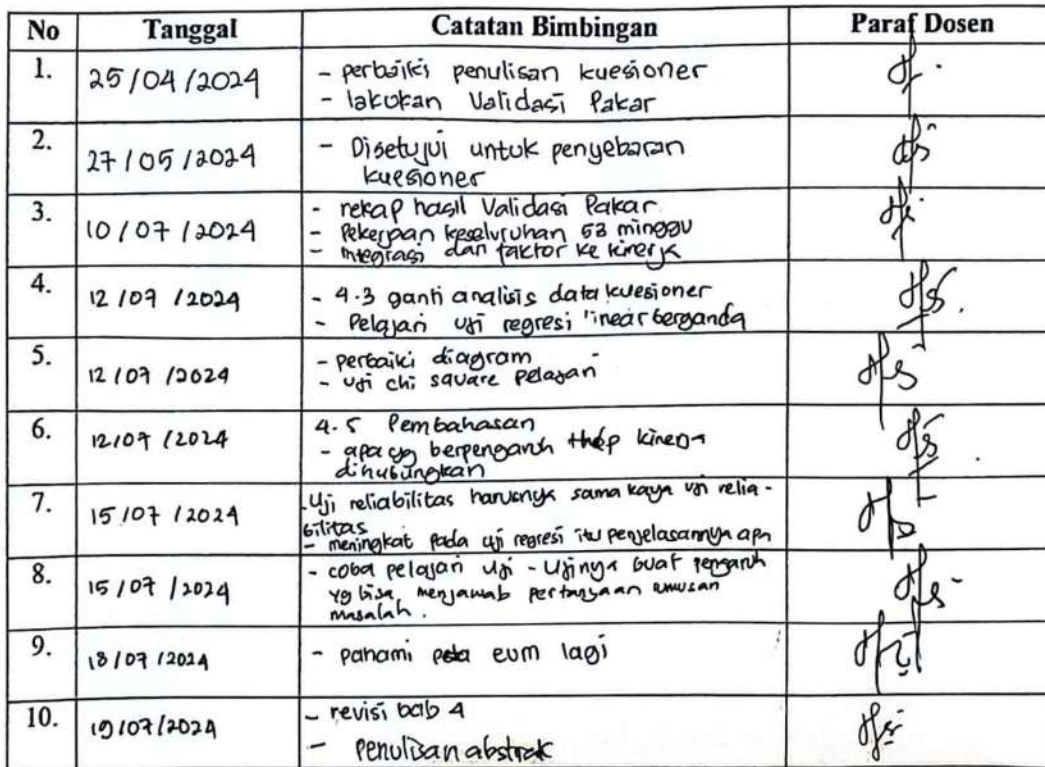 No Tanggal Catatan Bimbingan Paraf Dosen
1. 25/04/2024 - perbaiki penulisan kuesioner
- lakukan Validasi Pakar
2. 27/05/2024 - Disetujui untuk penyebaran
kuesioner
3. 10/07/2024 - rekap hasil Validasi Pakar
- Pekerjaan keseluruhan 53 minggu
- Integrasi dan faktor ke kinerja
4. 12/07/2024 - 4.3 ganti analisis data kuesioner
- Pelajari uji regresi linear berganda
5. 12/07/2024 - perbaiki diagram
- uji chi square pelajari
6. 12/07/2024 4.5 Pembahasan
- apa yg berpengaruh thdp kinerja
dihubungkan
7. 15/07/2024 - Uji reliabilitas harusnya sama kaya uji relia-
bilitas
- meningkat pada uji regresi itu penjelasannya apa
8. 15/07/2024 - coba pelajari uji - ujinya buat pengaruh
yg bisa menjawab pertanyaan rumusan
masalah.
9. 18/07/2024 - pahami eum lagi
10. 19/07/2024 - revisi bab 4
- Penulisan abstrak